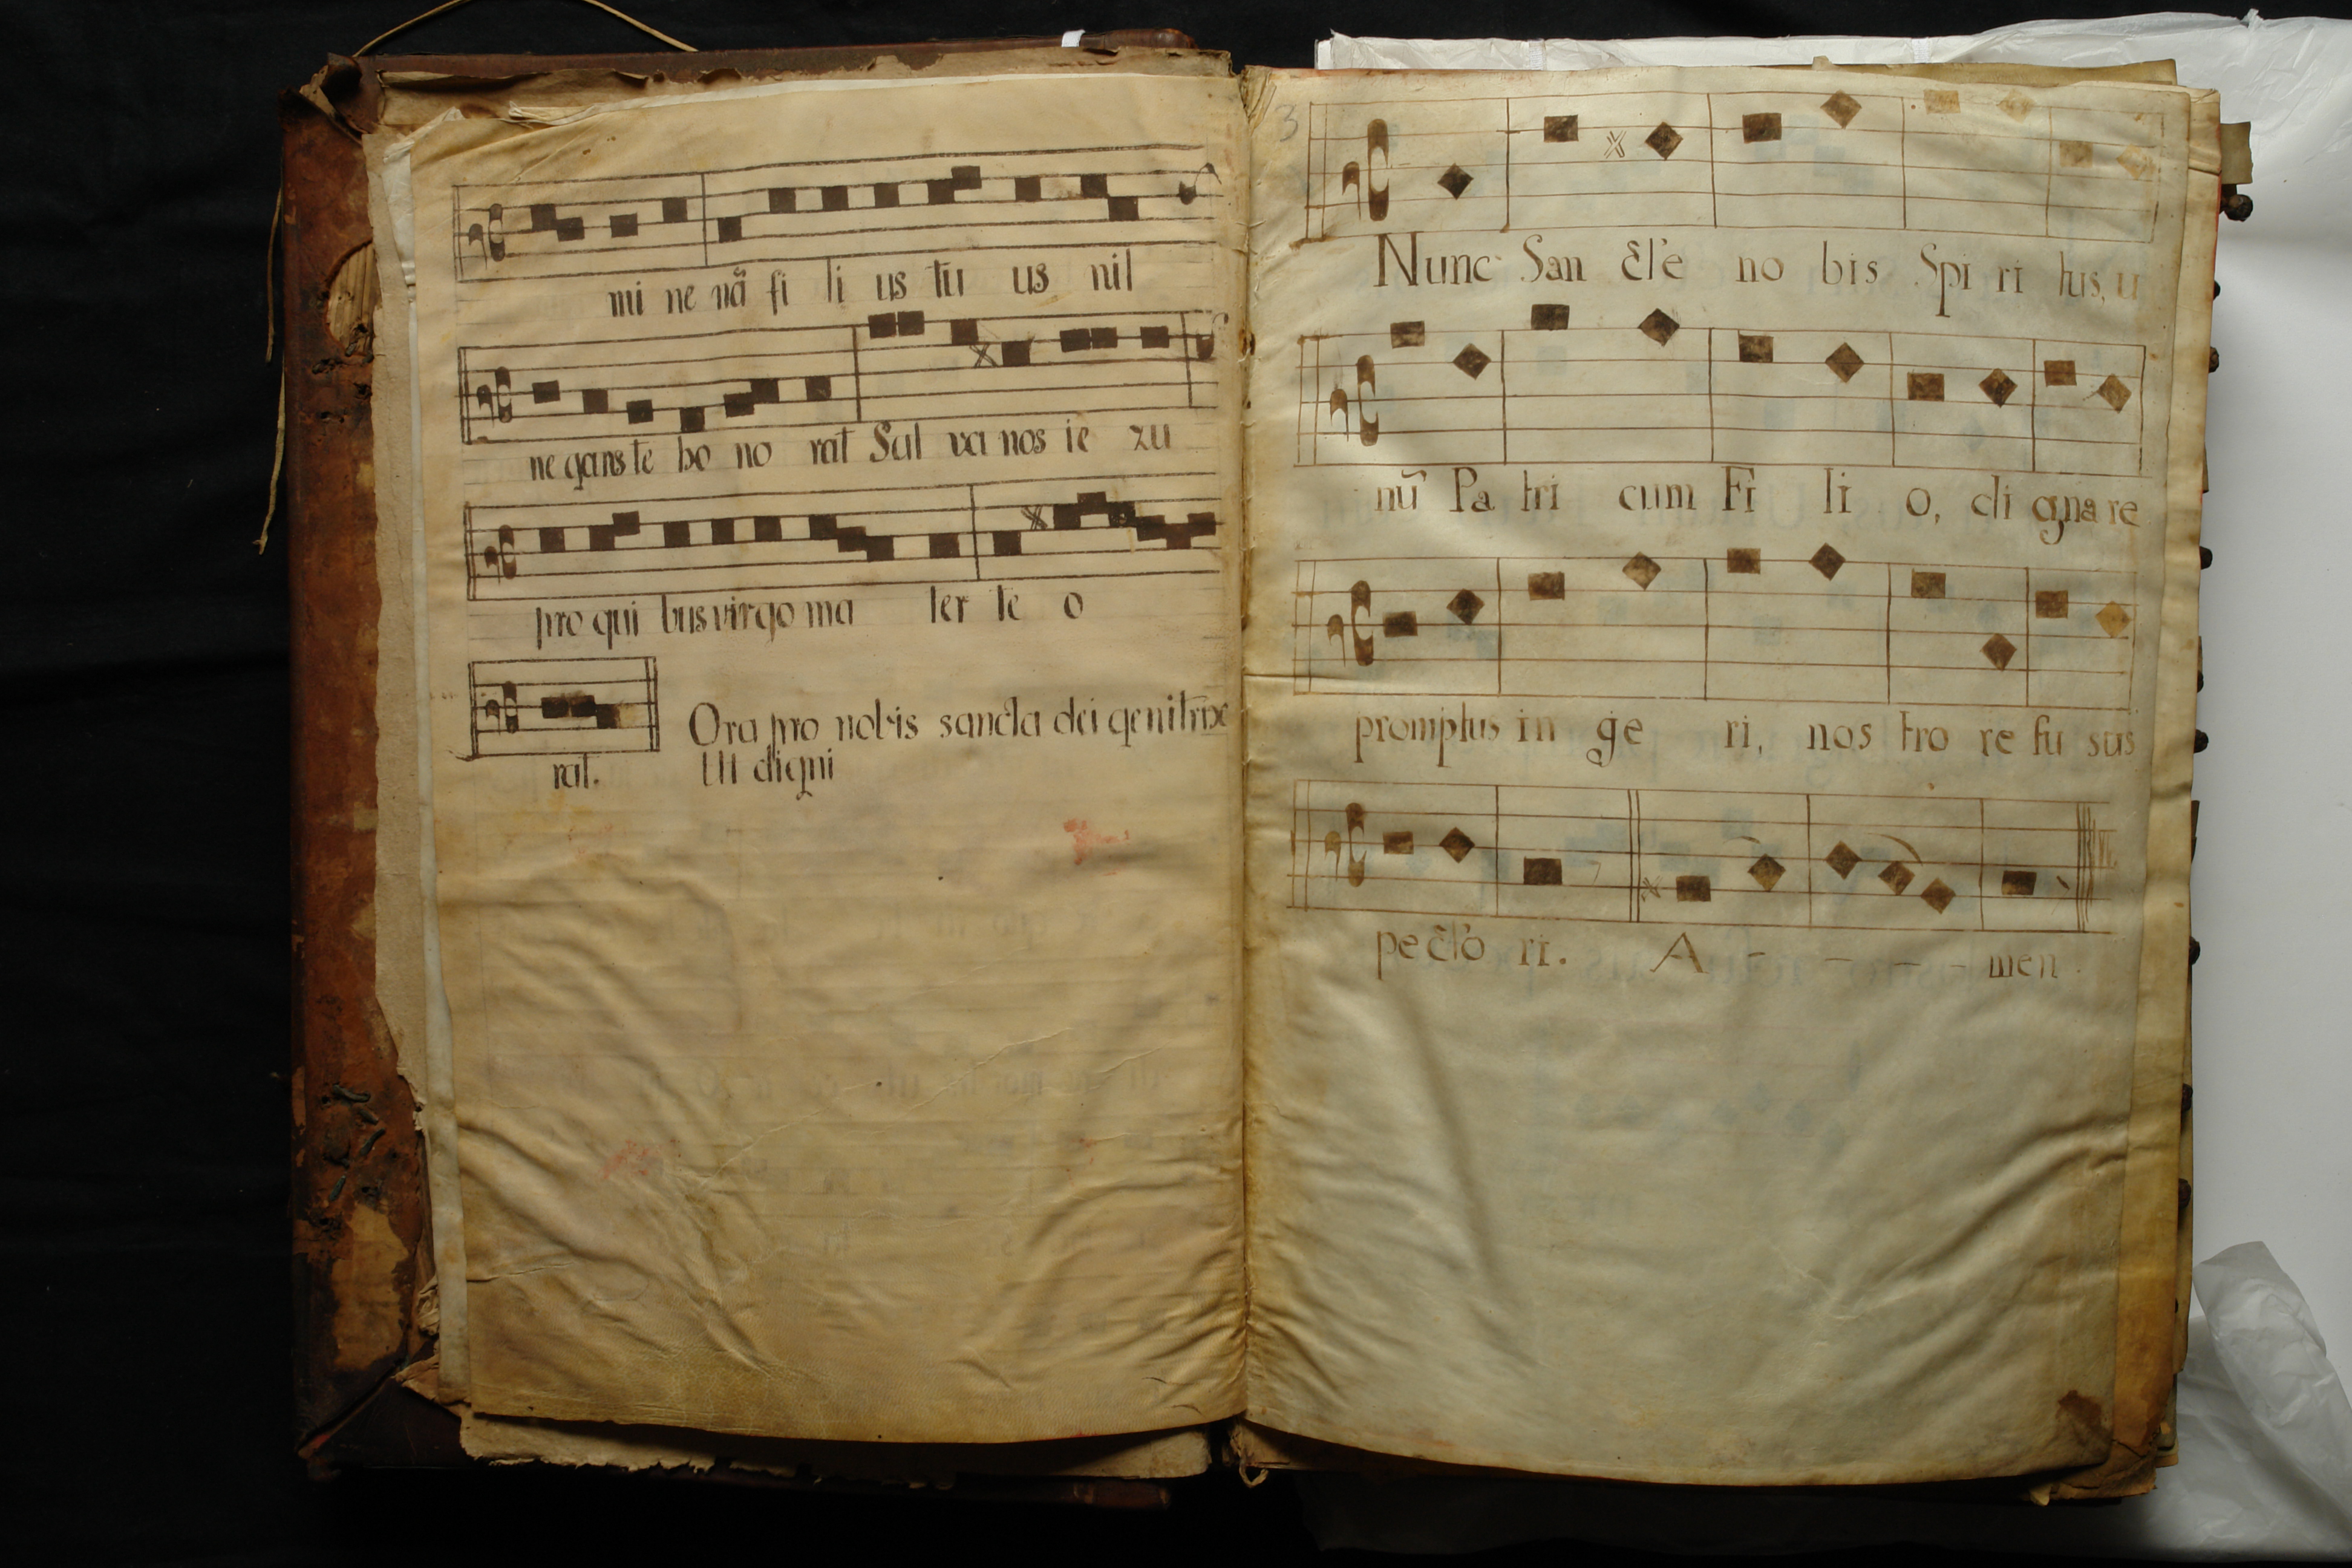 mi ne nã fi li us tu us nil
ne gans te ho no rat Sal va nos ie zu
pro qui bus virgo ma ter te o
rat. Ora pro nobis sancta dei genitrix
Ut digni
3
Nunc San cte no bis Spi ri tus, u
nũ Pa tri cum Fi li o, di gna re
promptus in ge ri, nos tro re fu sus
pecto ri. A - - - - men